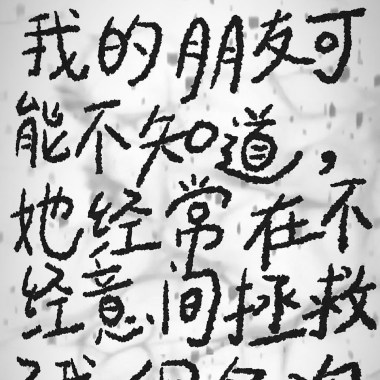 我的朋友可
能不知道，
她经常在不
经意间拯救
我很多次